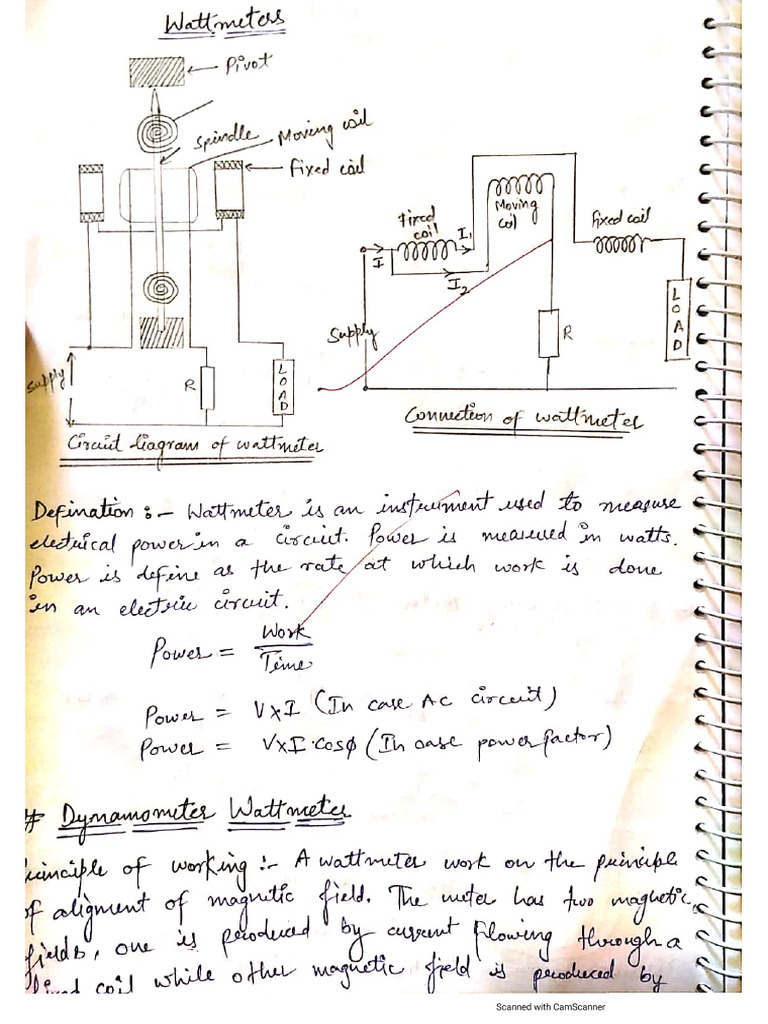 Wattmeters
Pivot
Spindle
Moving coil
fixed coil
Supply
R
LOAD
Circuit diagram of wattmeter
Fixed
coil
I
I1
I2
Moving
coil
fixed coil
Supply
R
LOAD
Connection of wattmeter
Defination :- Wattmeter is an instrument used to measure
electrical power in a circuit. Power is measured in watts.
Power is define as the rate at which work is done
in an electric circuit.
Power = Work
Time
Power = V×I (In case AC circuit)
Power = V×I·cosϕ (In case power factor)
# Dynamometer Wattmeter
Principle of working :- A wattmeter work on the principle
of aligment of magnetic field. The meter has two magnetic
fields, one is produced by current flowing through a
fixed coil while other magnetic field is produced by
Scanned with CamScanner